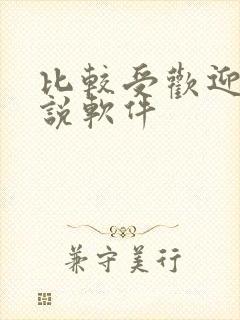 比較受歡迎
說軟件
兼守美行